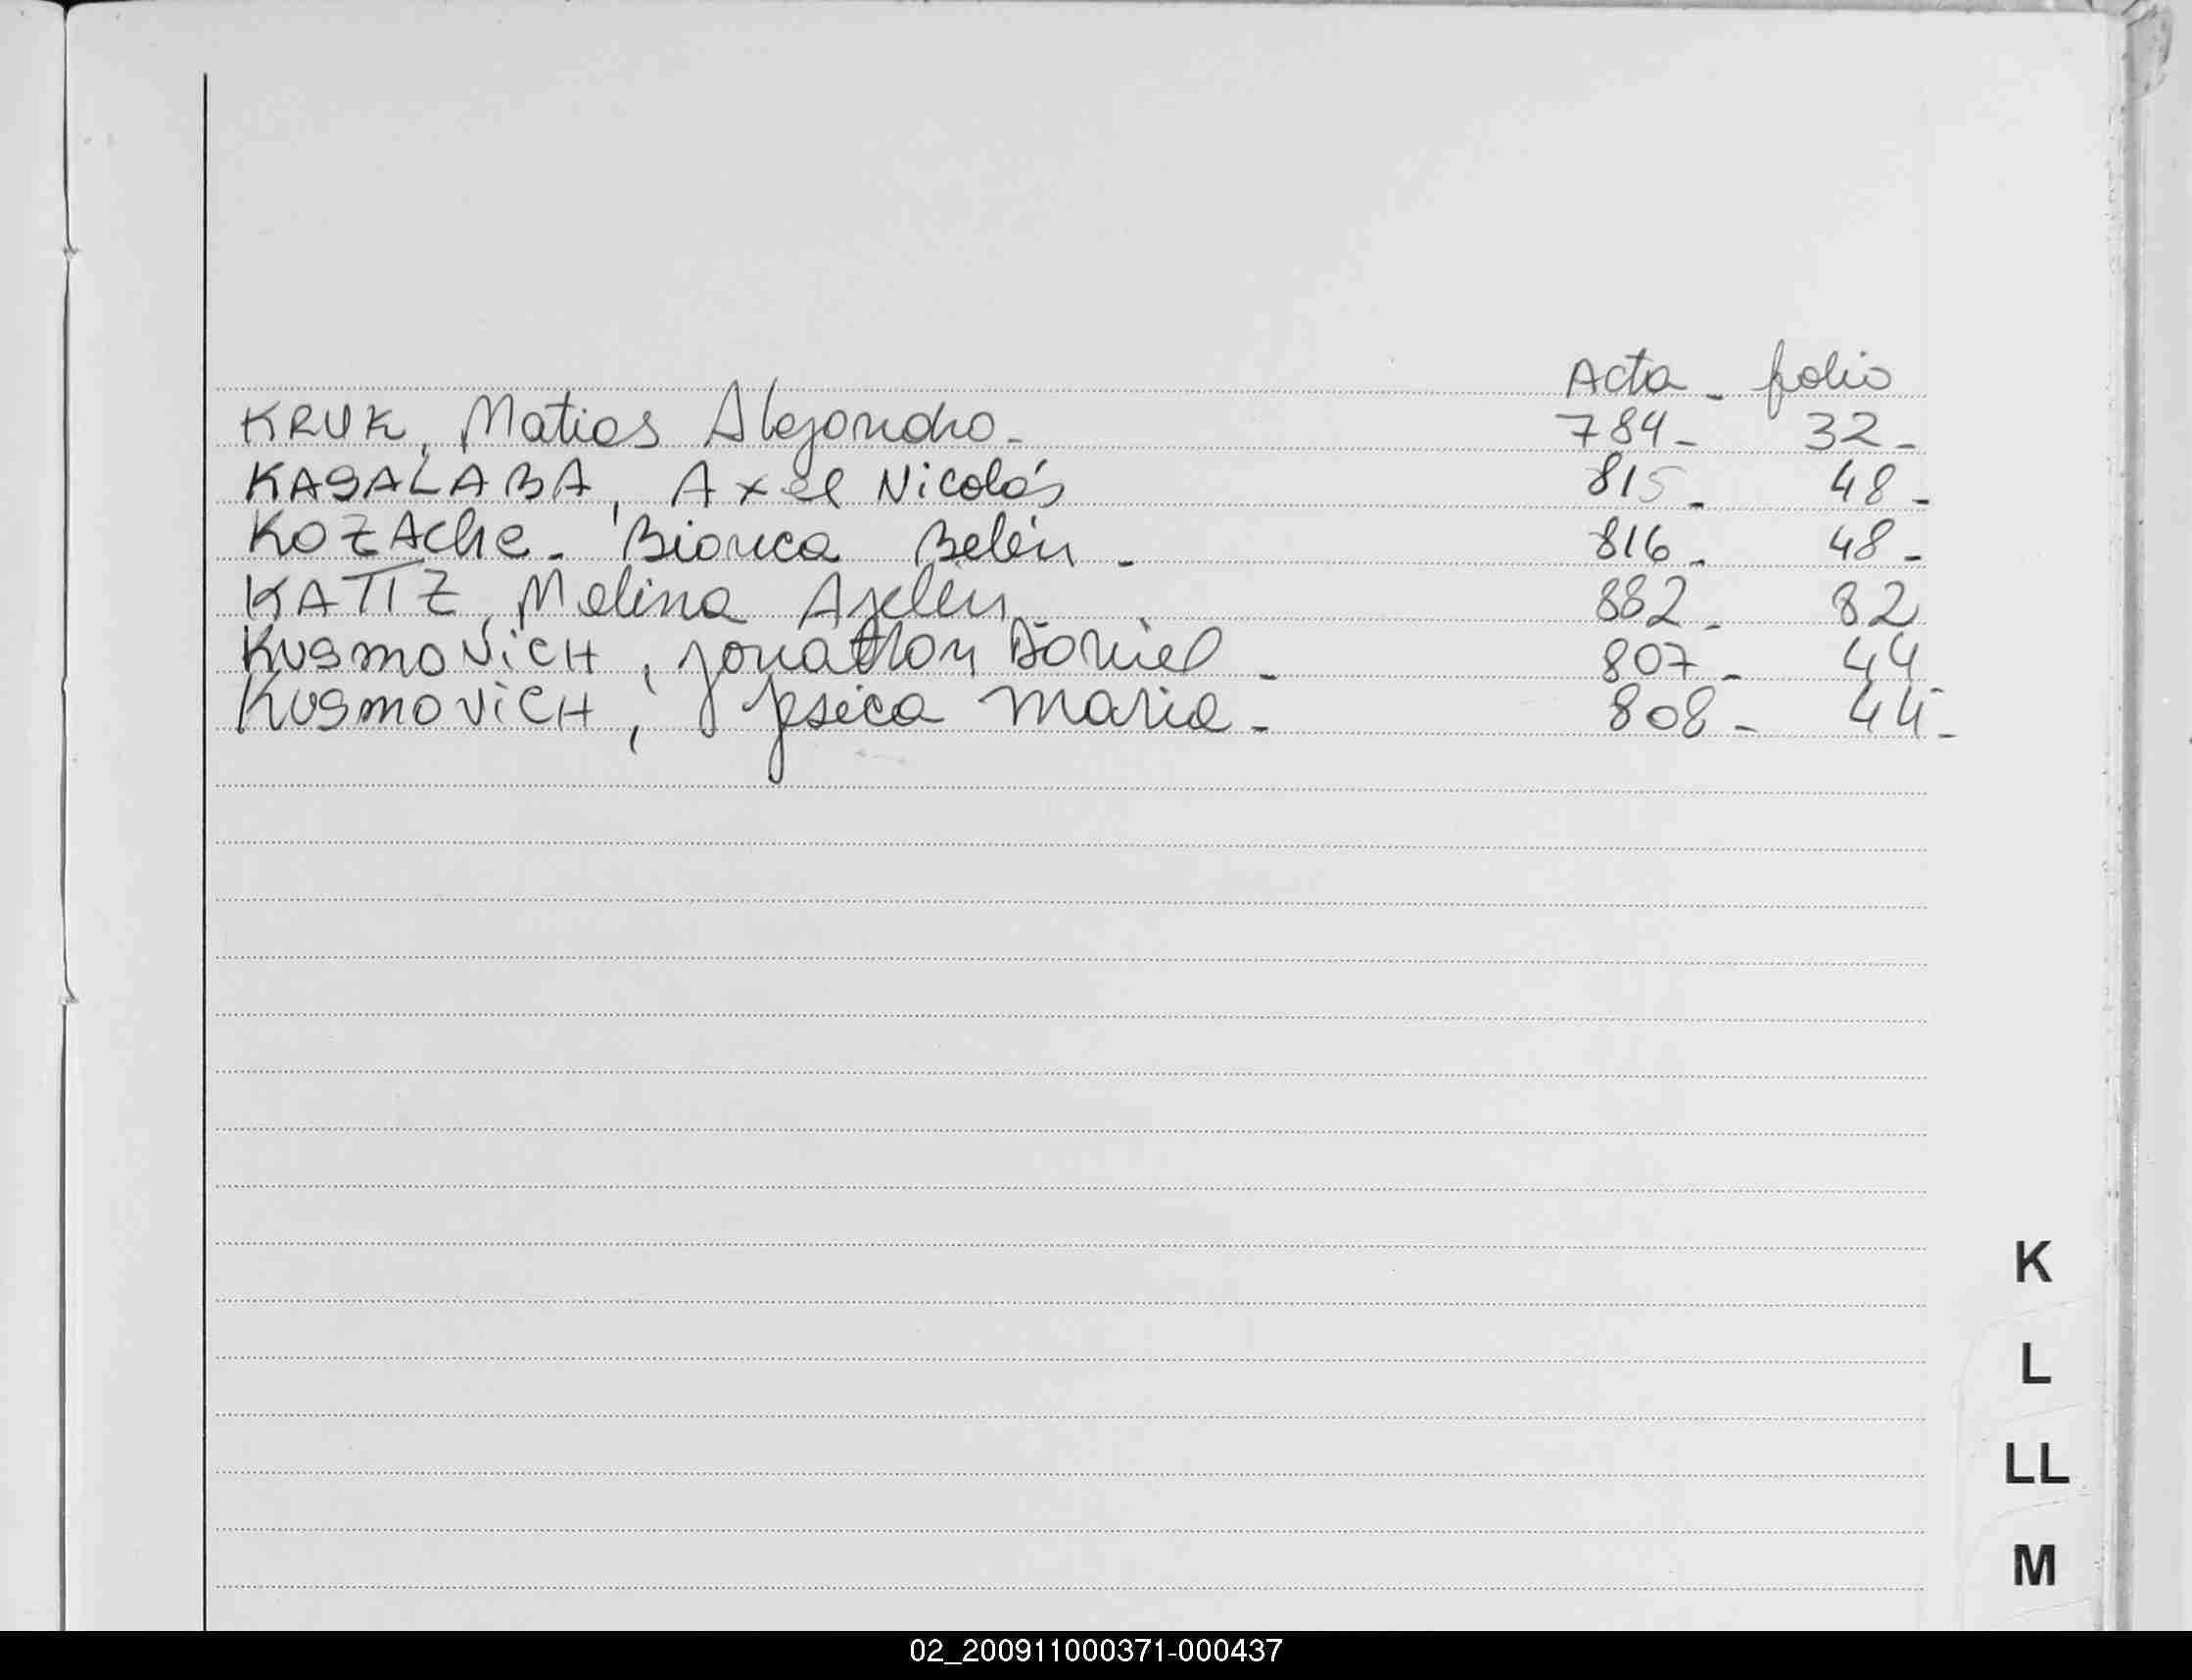 Acta - folio
KRUK, Matias Alejandro - 784 - 32 -
KASALABA, Axel Nicolás 815 - 48 -
KOZAChe - Bianca Belén - 816 - 48 -
KATIZ, Melina Ayelén 882 - 82
KUSMOVICH, Jonathan Daniel - 807 - 44 -
KUSMOVICH, Jesica Maria - 808 - 44 -
K
L
LL
M
02_200911000371-000437